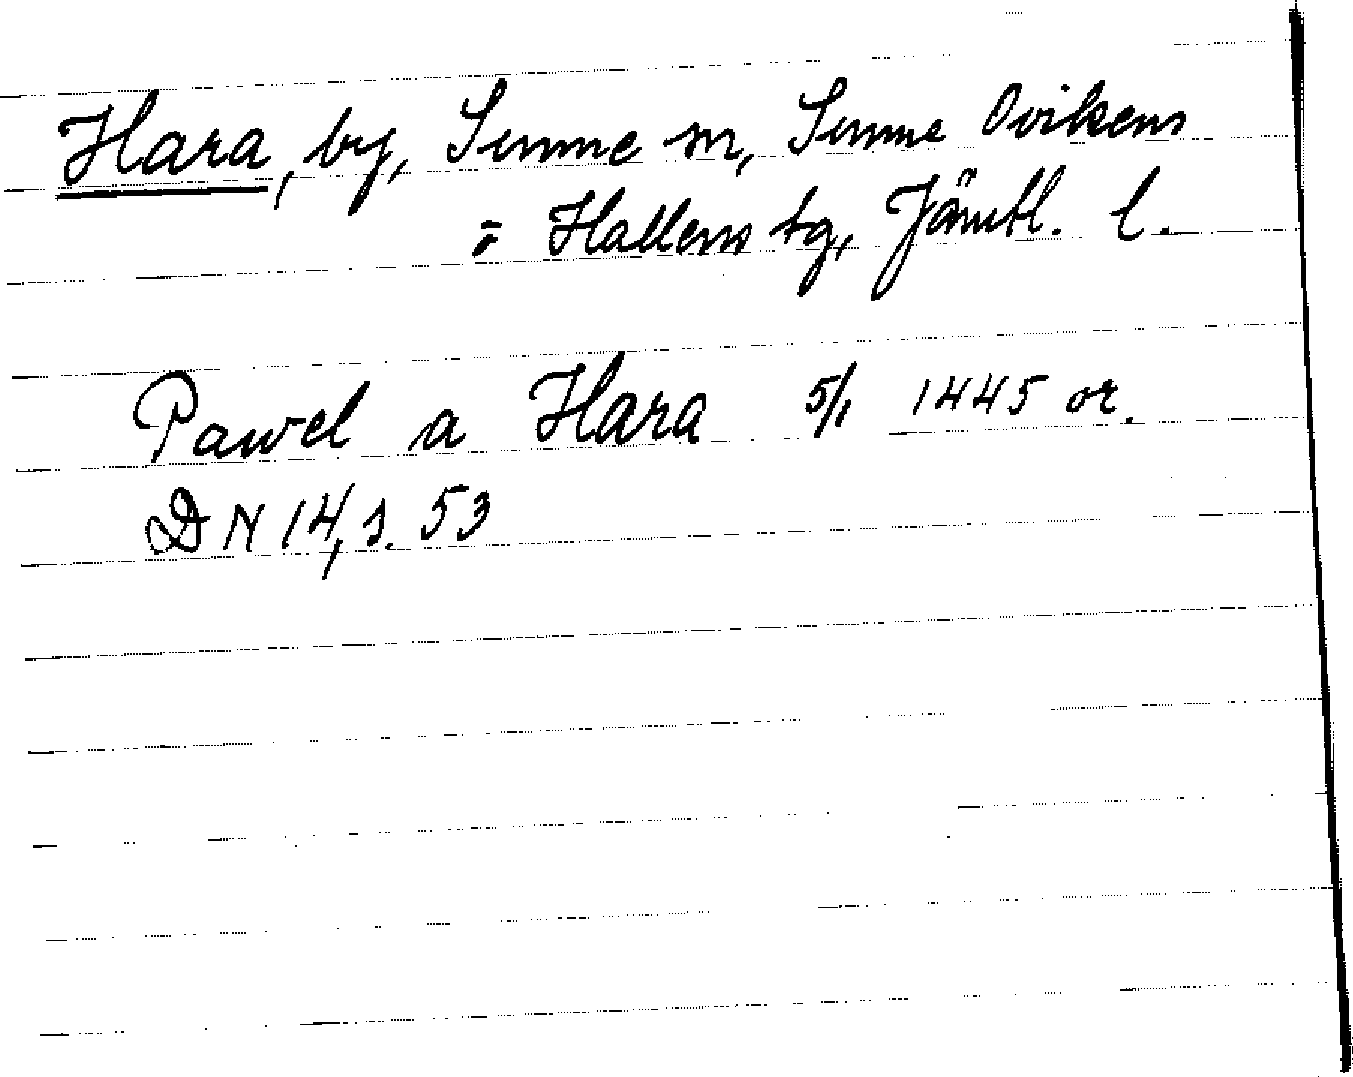 Hara, by, Sunne sn, Sunne Ovikens
o. Hallens tg, Jämtl. l.
Pawel a Hara 5/1 1445 or.
DN 14, s. 53